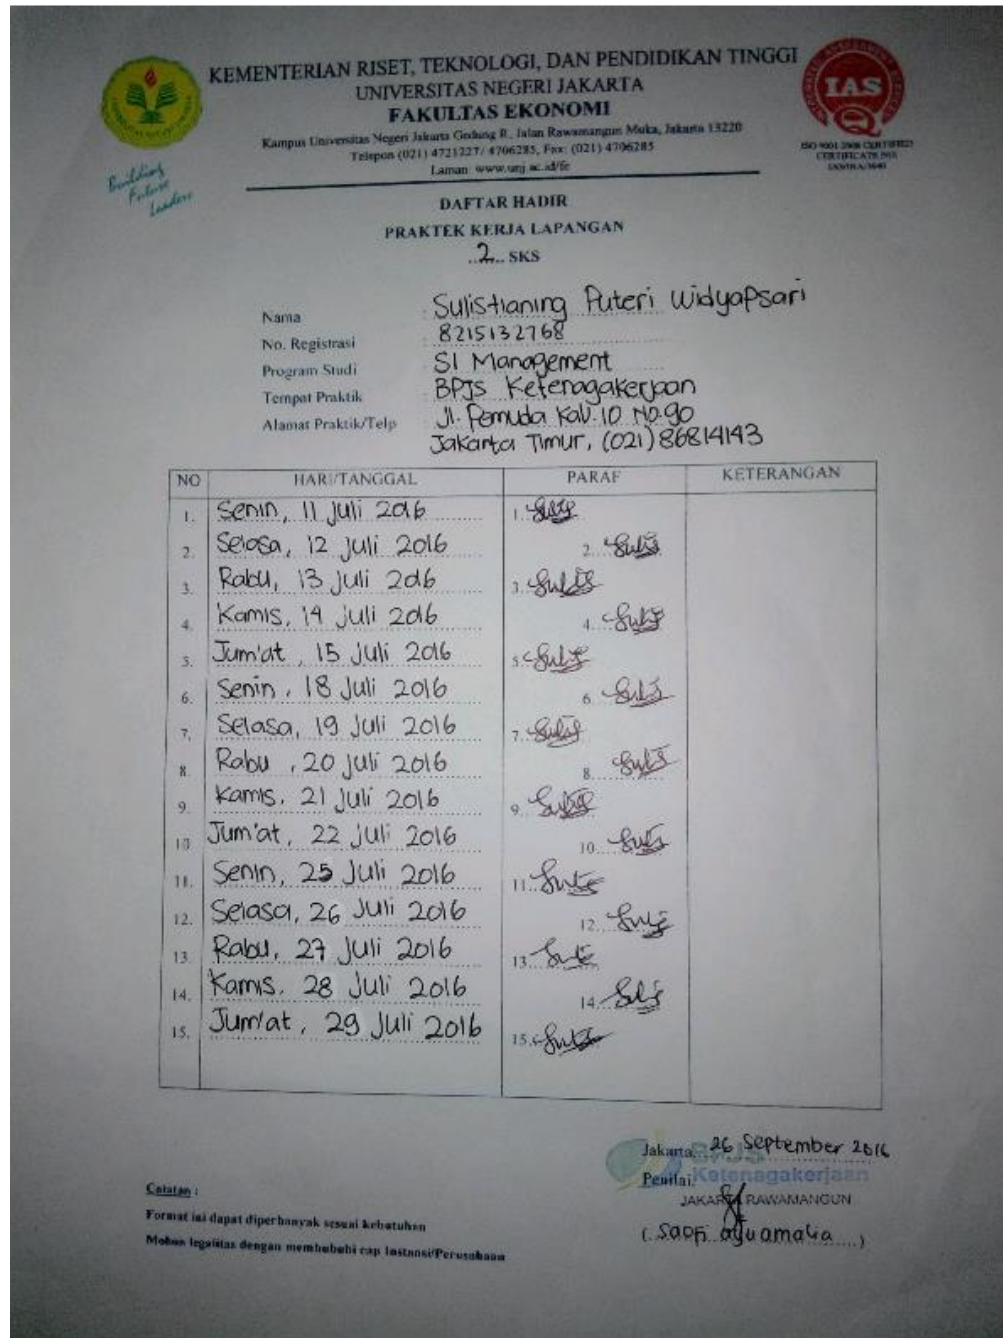 KEMENTERIAN RISET, TEKNOLOGI, DAN PENDIDIKAN TINGGI
UNIVERSITAS NEGERI JAKARTA
FAKULTAS EKONOMI
Kampus Universitas Negeri Jakarta Gedung R, Jalan Rawamangun Muka, Jakarta 13220
Telepon (021) 4721227/ 4706285, Fax: (021) 4706285
Laman: www.unj.ac.id/fe
IAS
ISO 9001:2008 CERTIFIED
CERTIFICATE NO.
Building
Future
Leaders
DAFTAR HADIR
PRAKTEK KERJA LAPANGAN
..2.. SKS
Nama : Sulistianing Puteri Widyapsari
No. Registrasi : 8215132768
Program Studi : S1 Management
Tempat Praktik : BPJS Ketenagakerjaan
Alamat Praktik/Telp : Jl. Pemuda Kav. 10 No. 90
Jakarta Timur, (021) 86814143
NO HARI/TANGGAL PARAF KETERANGAN
1. Senin, 11 Juli 2016 1.
2. Selasa, 12 Juli 2016 2.
3. Rabu, 13 Juli 2016 3.
4. Kamis, 14 Juli 2016 4.
5. Jum'at, 15 Juli 2016 5.
6. Senin, 18 Juli 2016 6.
7. Selasa, 19 Juli 2016 7.
8. Rabu, 20 Juli 2016 8.
9. Kamis, 21 Juli 2016 9.
10. Jum'at, 22 Juli 2016 10.
11. Senin, 25 Juli 2016 11.
12. Selasa, 26 Juli 2016 12.
13. Rabu, 27 Juli 2016 13.
14. Kamis, 28 Juli 2016 14.
15. Jum'at, 29 Juli 2016 15.
Jakarta, 26 September 2016
Penilai, Ketenagakerjaan
JAKARTA RAWAMANGUN
Catatan :
Format ini dapat diperbanyak sesuai kebutuhan
Mohon legalitas dengan membubuhi cap Instansi/Perusahaan